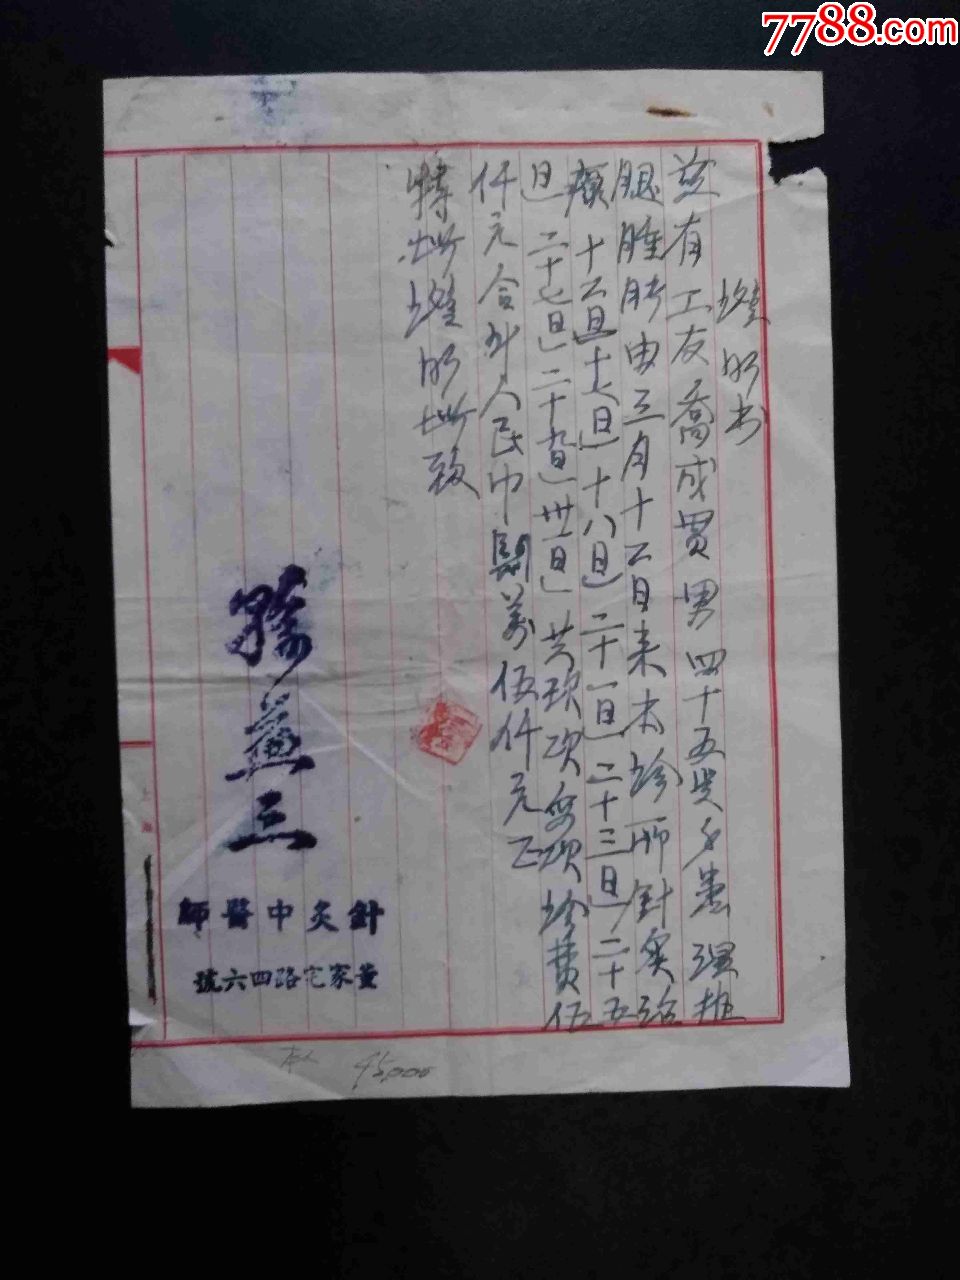 7788.com
證明书
兹有工友喬成貫男四十五岁于患
腿腫脹由三月十二日来本診所針灸治
十二日十六日」十八日」二十一日」二十三日」二十五
日」二十七日」二十九日」卅一日」共玖次每次診費伍
仟元合計人民巾肆萬伍仟元正
特此證明此致
益三
針灸中醫師
董家宅路四六號
45000